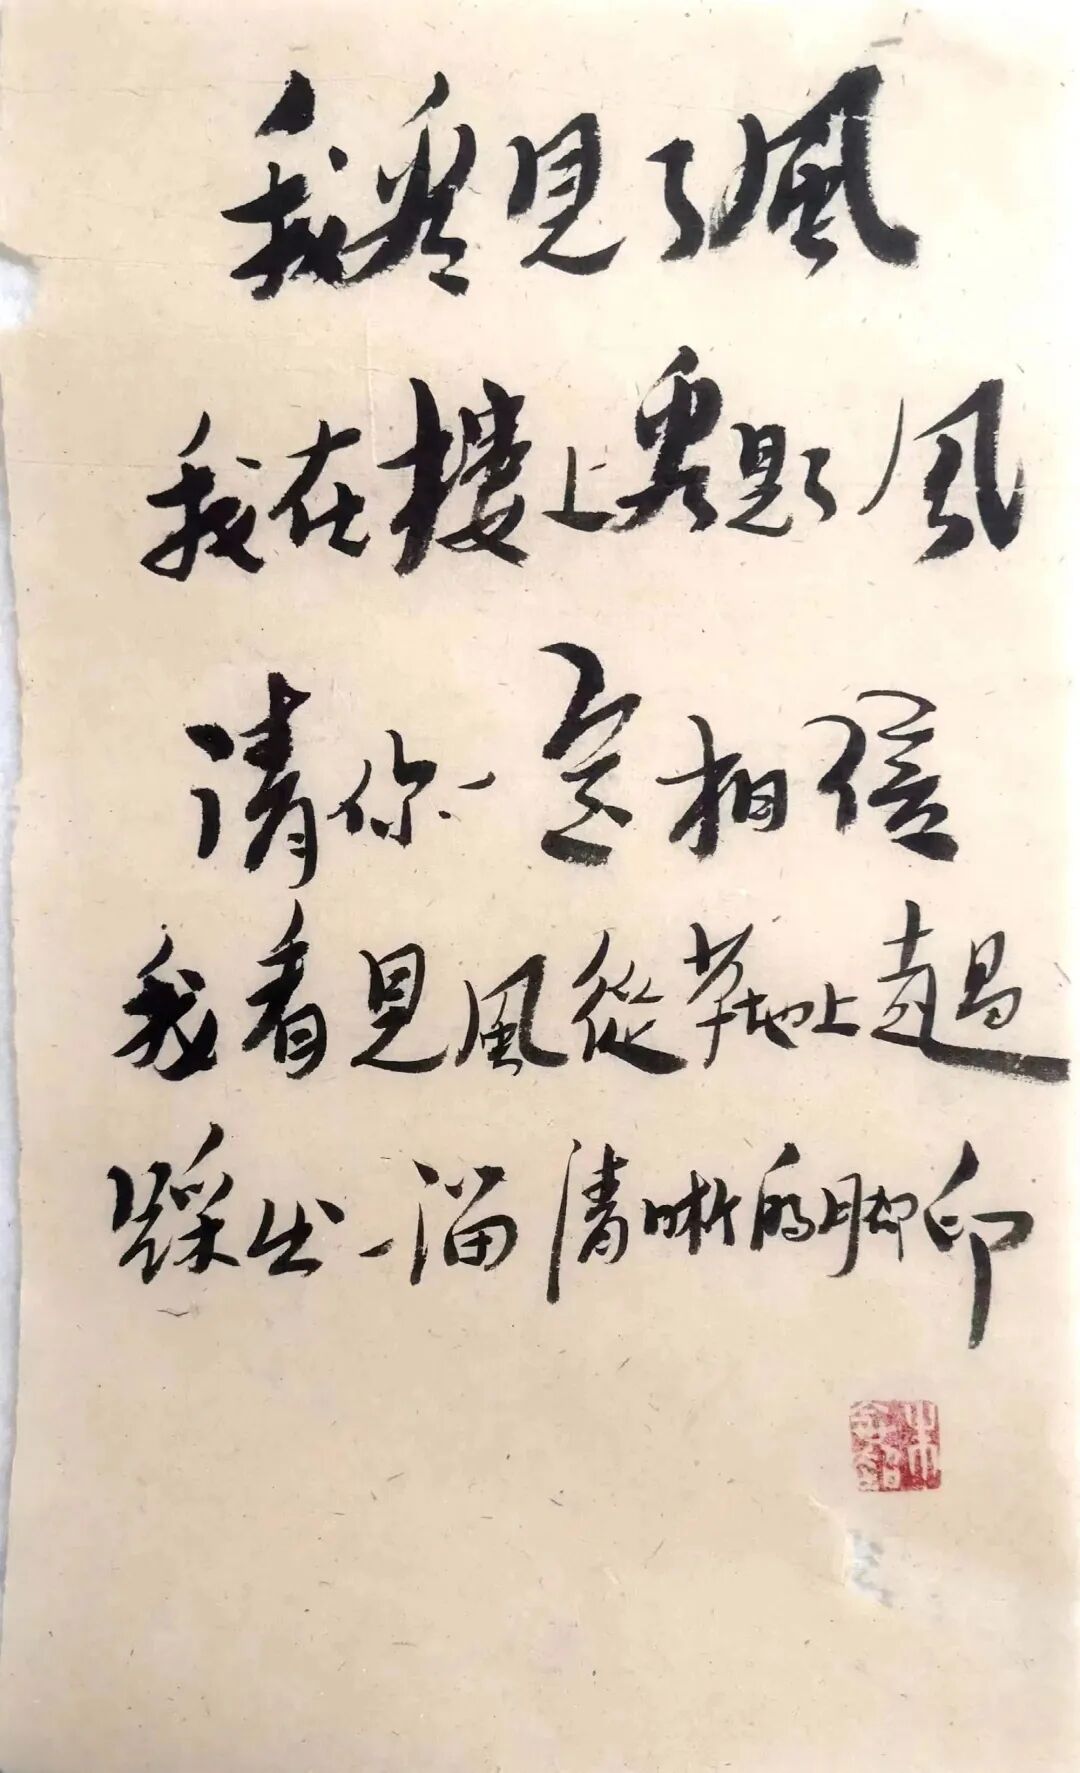 我看見了風
我在樓上看見了風
請你一定相信
我看見風從草地上走過
踩出一溜清晰的脚印
朱